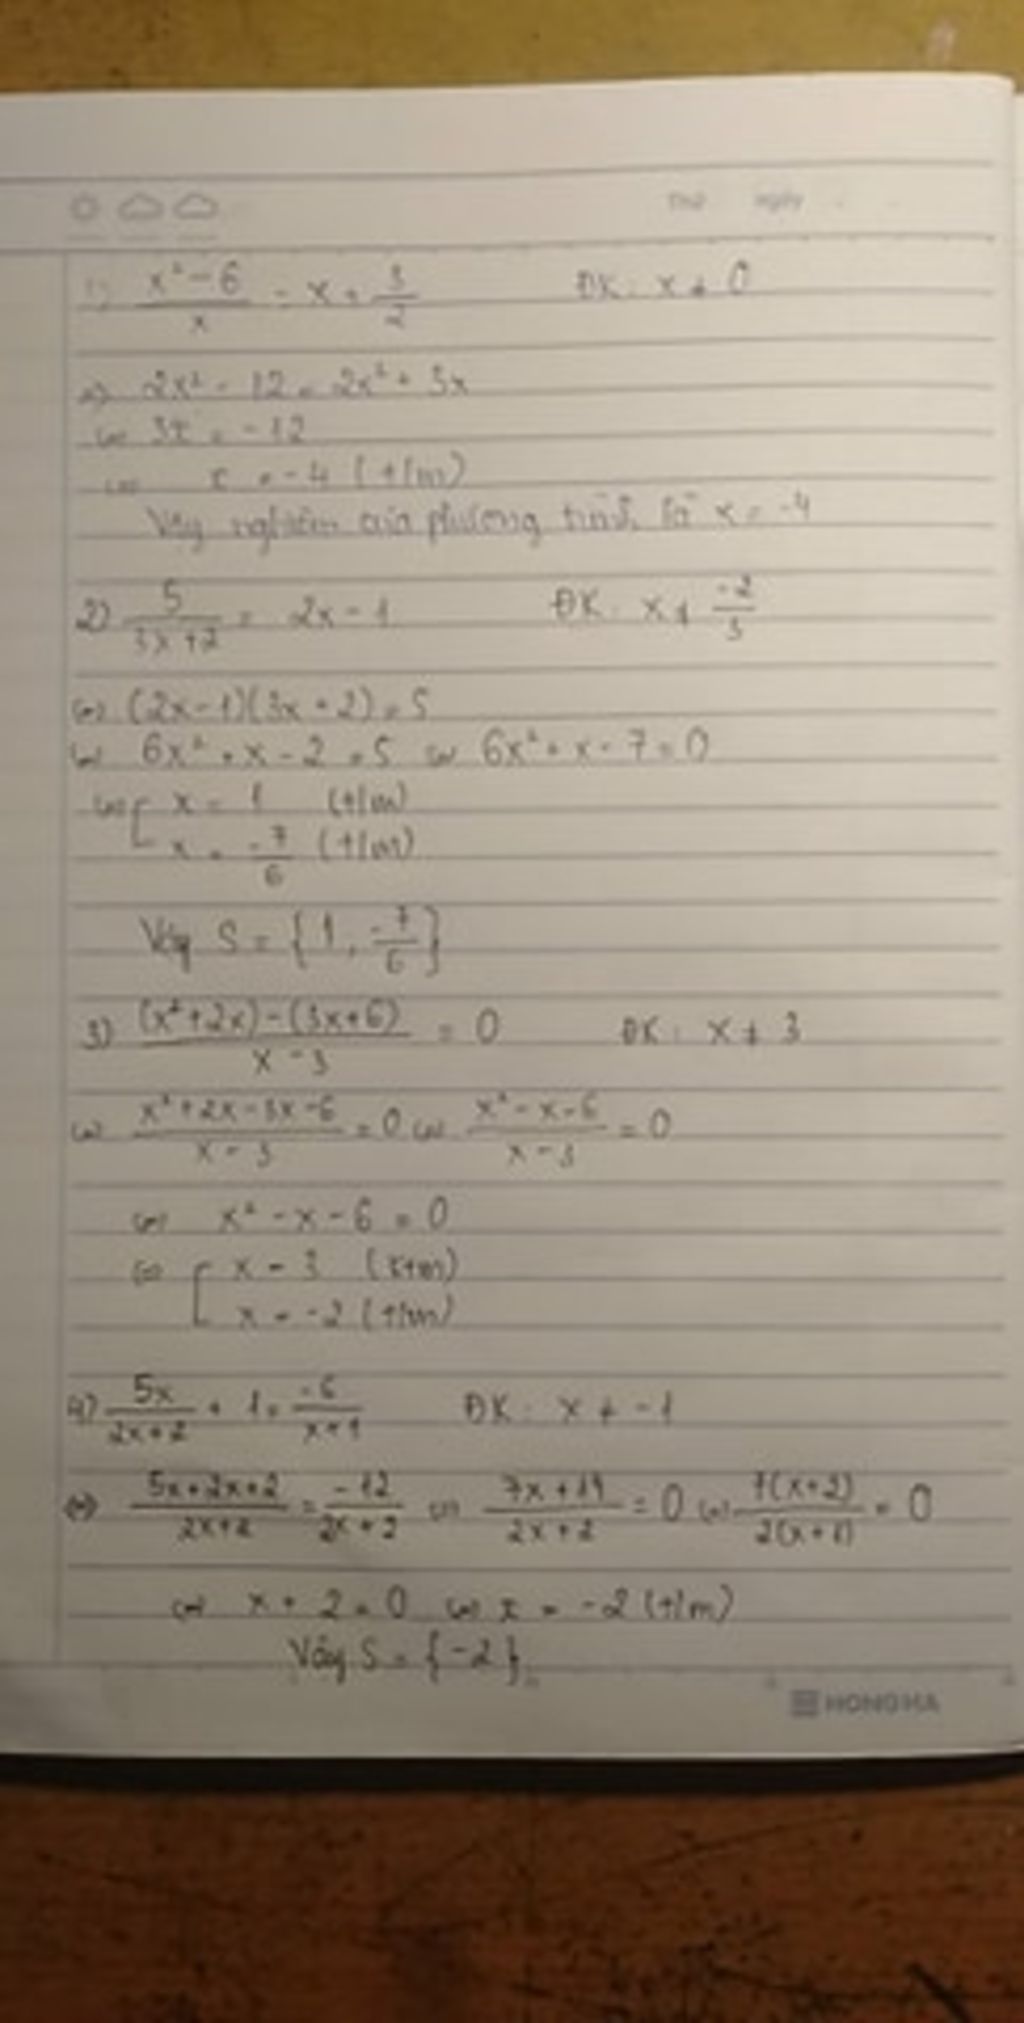 Thứ ngày
1) \frac{x²-6}{x} = x + \frac{3}{2} ĐK: x ≠ 0
=> 2x² - 12 = 2x² + 3x
<=> 3x = -12
<=> x = -4 (t/m)
Vậy nghiệm của phương trình là x = -4
2) \frac{5}{3x+2} = 2x - 1 ĐK: x ≠ \frac{-2}{3}
<=> (2x-1)(3x+2) = 5
<=> 6x² + x - 2 = 5 <=> 6x² + x - 7 = 0
<=> [ x = 1 (t/m)
x = \frac{-7}{6} (t/m)
Vậy S = {1, \frac{-7}{6}}
3) \frac{(x²+2x)-(3x+6)}{x-3} = 0 ĐK: x ≠ 3
<=> \frac{x²+2x-3x-6}{x-3} = 0 <=> \frac{x²-x-6}{x-3} = 0
<=> x² - x - 6 = 0
<=> [ x = 3 (ktm)
x = -2 (t/m)
4) \frac{5x}{2x+2} + 1 = \frac{-6}{x+1} ĐK: x ≠ -1
<=> \frac{5x+2x+2}{2x+2} = \frac{-12}{2x+2} <=> \frac{7x+14}{2x+2} = 0 <=> \frac{7(x+2)}{2(x+1)} = 0
<=> x + 2 = 0 <=> x = -2 (t/m)
Vậy S = {-2}
HONG HA